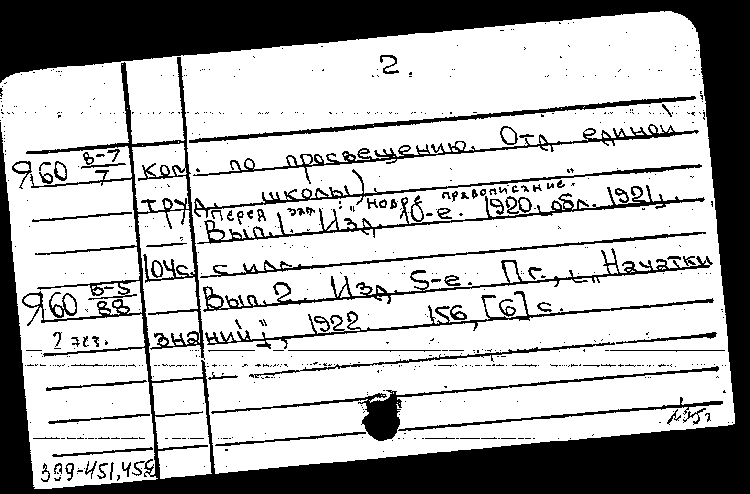 2.
Я60 В-7/7 ком. по просвещению. Отд. единой
труд. школы).
Перед загл.: "Новое правописание".
Вып. 1. Изд. 10-е. 1920, обл. 1921.
104с. с илл.
Я60 В-5/88 Вып. 2. Изд. 5-е. Пг., "Начатки
2 экз. знаний", 1922. 156, [6] с.
399-451,452